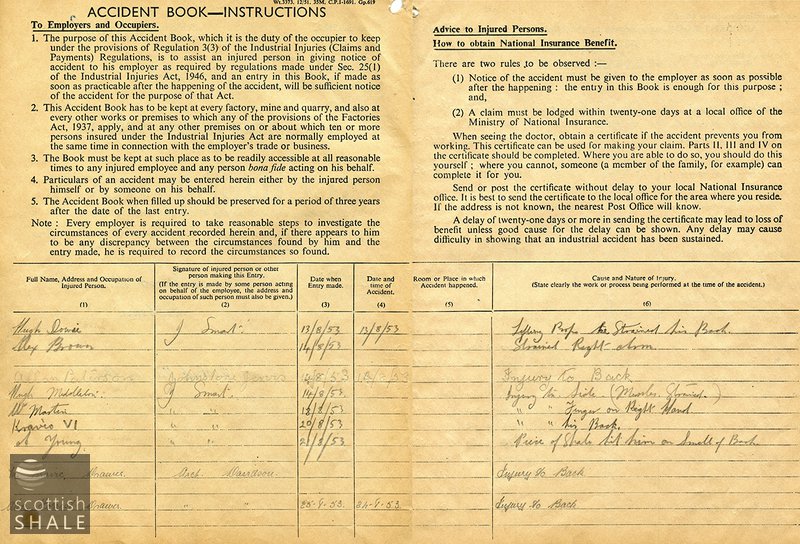 Wt.3373. 12/51. 35M. C.P.I-1691. Gp.619
ACCIDENT BOOK—INSTRUCTIONS
To Employers and Occupiers.
1. The purpose of this Accident Book, which it is the duty of the occupier to keep
under the provisions of Regulation 3(3) of the Industrial Injuries (Claims and
Payments) Regulations, is to assist an injured person in giving notice of
accident to his employer as required by regulations made under Sec. 25(1)
of the Industrial Injuries Act, 1946, and an entry in this Book, if made as
soon as practicable after the happening of the accident, will be sufficient notice
of the accident for the purpose of that Act.
2. This Accident Book has to be kept at every factory, mine and quarry, and also at
every other works or premises to which any of the provisions of the Factories
Act, 1937, apply, and at any other premises on or about which ten or more
persons insured under the Industrial Injuries Act are normally employed at
the same time in connection with the employer's trade or business.
3. The Book must be kept at such place as to be readily accessible at all reasonable
times to any injured employee and any person bona fide acting on his behalf.
4. Particulars of an accident may be entered herein either by the injured person
himself or by someone on his behalf.
5. The Accident Book when filled up should be preserved for a period of three years
after the date of the last entry.
Note : Every employer is required to take reasonable steps to investigate the
circumstances of every accident recorded herein and, if there appears to him
to be any discrepancy between the circumstances found by him and the
entry made, he is required to record the circumstances so found.
Advice to Injured Persons.
How to obtain National Insurance Benefit.
There are two rules to be observed :—
(1) Notice of the accident must be given to the employer as soon as possible
after the happening : the entry in this Book is enough for this purpose ;
and,
(2) A claim must be lodged within twenty-one days at a local office of the
Ministry of National Insurance.
When seeing the doctor, obtain a certificate if the accident prevents you from
working. This certificate can be used for making your claim. Parts II, III and IV on
the certificate should be completed. Where you are able to do so, you should do this
yourself ; where you cannot, someone (a member of the family, for example) can
complete it for you.
Send or post the certificate without delay to your local National Insurance
office. It is best to send the certificate to the local office for the area where you reside.
If the address is not known, the nearest Post Office will know.
A delay of twenty-one days or more in sending the certificate may lead to loss of
benefit unless good cause for the delay can be shown. Any delay may cause
difficulty in showing that an industrial accident has been sustained.
Full Name, Address and Occupation of
Injured Person.
(1)
Signature of injured person or other
person making this Entry.
(If the entry is made by some person acting
on behalf of the employee, the address and
occupation of such person must also be given.)
(2)
Date when
Entry made.
(3)
Date and
time of
Accident.
(4)
Room or Place in which
Accident happened.
(5)
Cause and Nature of Injury.
(State clearly the work or process being performed at the time of the accident.)
(6)
Hugh J Smart 13/8/53 13/8/53 Strained his Back.
Alex Brown 14/8/53 Strained Right
14/8/53 Injury to Back
Hugh Middleton J Smart. 14/8/53 Injury to Side (Muscles Strained.)
W Martin " " 18/8/53 " " Finger on Right Hand
Kravio VI " " 20/8/53 " " his Back.
Young. " " 21/8/53 Piece of Shale hit him on Small of Back
Drawer Arch. Davidson. Injury to Back
Drawer " " 25.8.53. 24.8.53 Injury to Back
scottish
SHALE